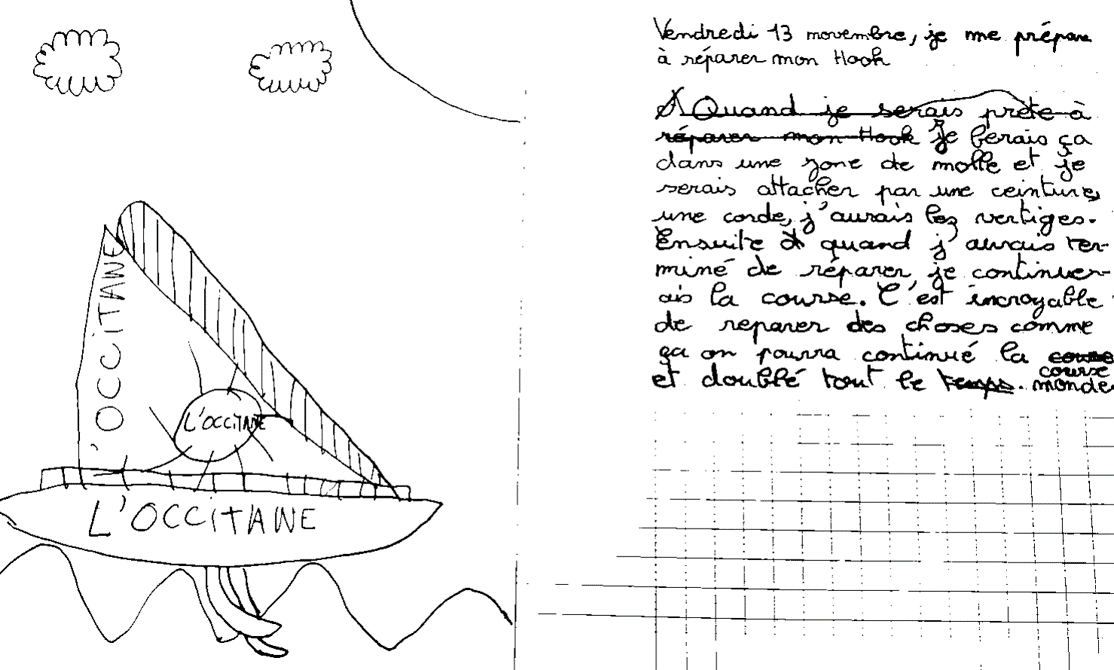 L'OCCITANE
L'OCCITANE
L'OCCITANE
Vendredi 13 novembre, je me prépare
à réparer mon Hook
Quand je serais prete à
réparer mon Hook je ferais ça
dans une zone de molle et je
serais attacher par une ceinture,
une corde, j'aurais les vertiges.
Ensuite quand j'aurais ter-
miné de réparer, je continuer-
ais la course. C'est incroyable
de reparer des choses comme
ça on pourra continué la course
course
et doublé tout le temps. monde